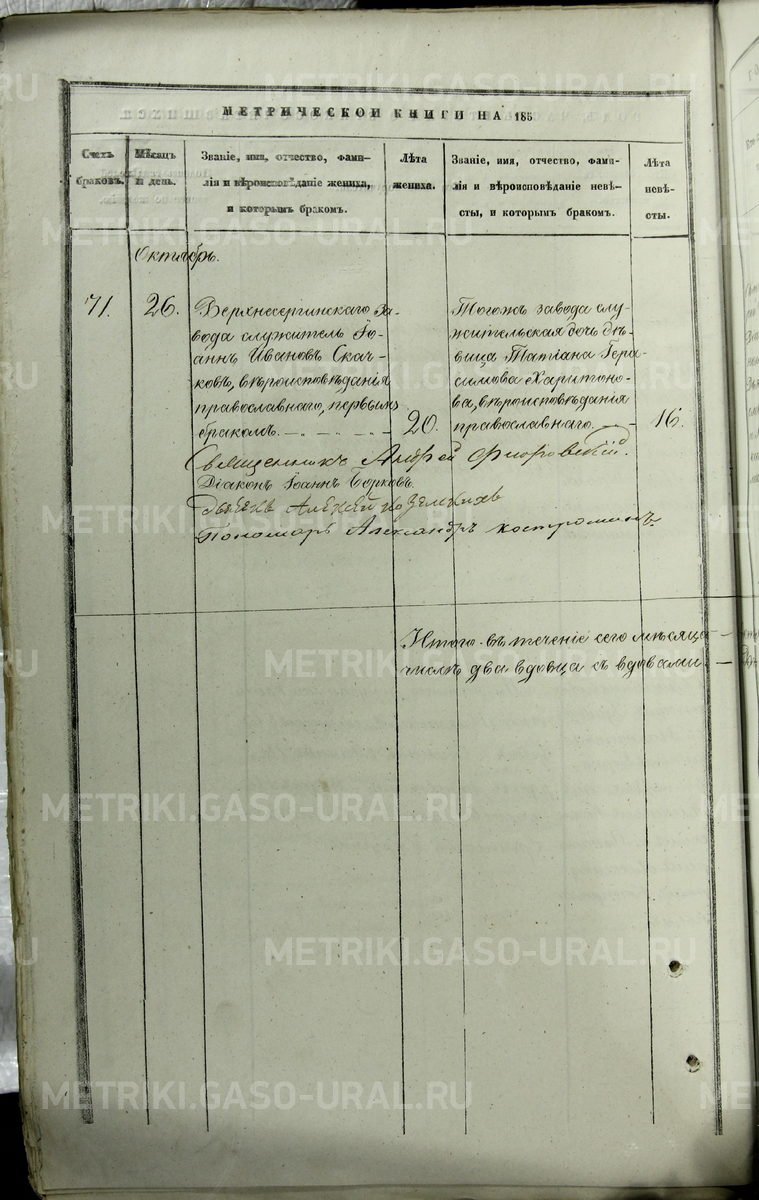 МЕТРИЧЕСКОЙ КНИГИ НА 185
Счетъ браковъ.
Мѣсяцъ и день.
Званіе, имя, отчество, фами-
лія и вѣроисповѣданіе жениха,
и которымъ бракомъ.
Лѣта жениха.
Званіе, имя, отчество, фами-
лія и вѣроисповѣданіе невѣ-
сты, и которымъ бракомъ.
Лѣта невѣ-
сты.
Октябрь.
71.
26.
Верхнесергинскаго За-
вода служитель Іо-
аннъ Ивановъ Скач-
ковъ, вѣроисповѣданія
православнаго, первымъ
бракомъ.
20.
Тогожъ завода слу-
жительская дочь дѣ-
вица Татіана Гера-
симова Харитоно-
ва, вѣроисповѣданія
православнаго.
16.
Священникъ Андрей Флоровскій.
Діаконъ Іоаннъ
Дьячекъ Алексѣй
Пономарь Александръ Костроминъ.
Итого въ теченіе сего мѣсяца
числѣ два вдовца съ вдовами.
METRIKI.GASO-URAL.RU